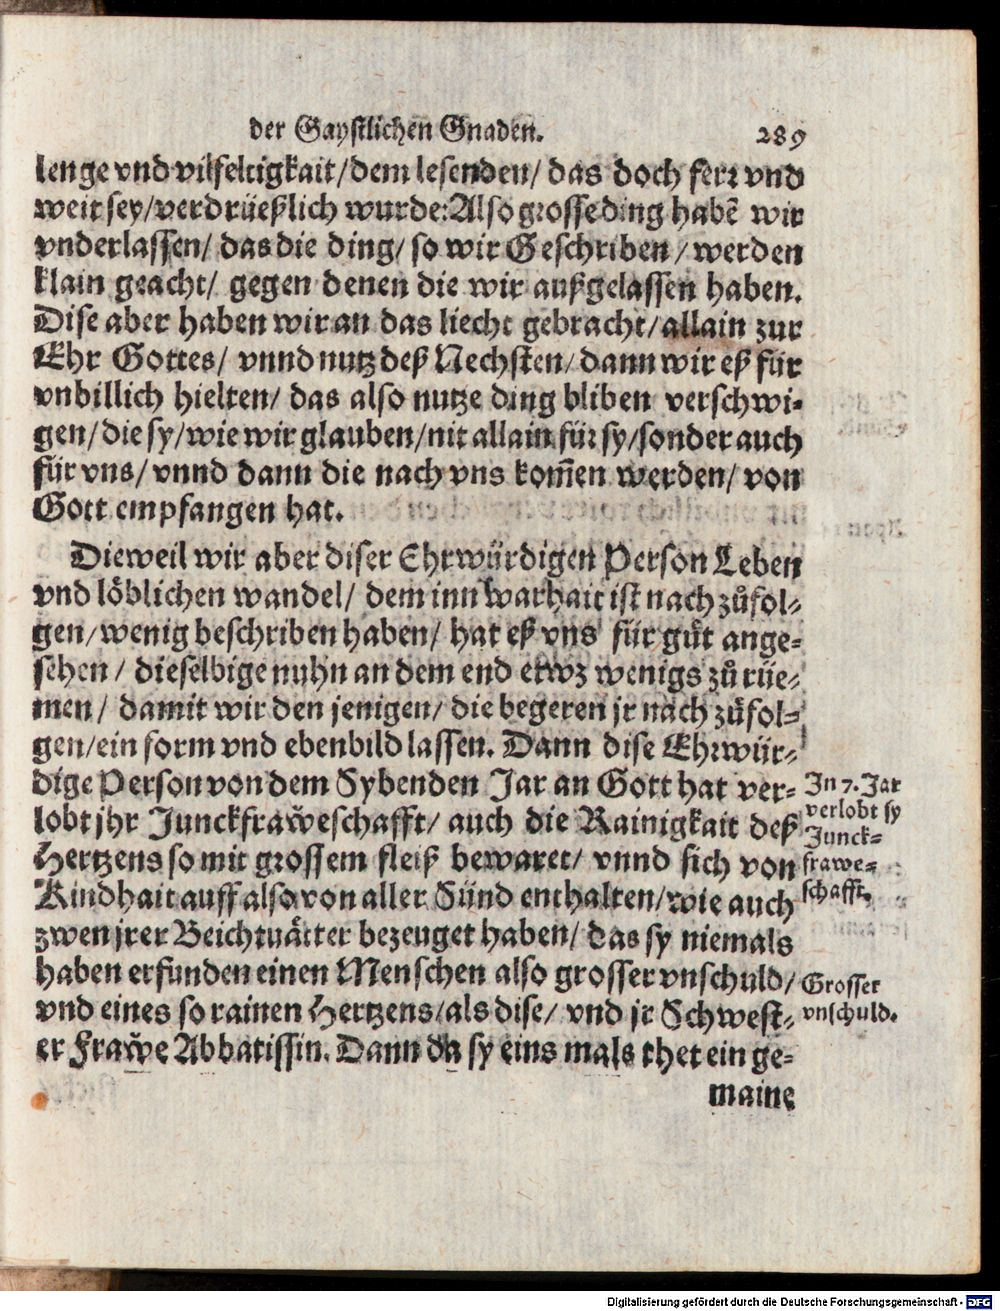 der Gaystlichen Gnaden. 289
lenge vnd vilfeltigkait/dem lesenden/ das doch ferr vnd
weit sey/verdrüeßlich wurde: Also grosse ding habē wir
vnderlassen/ das die ding/ so wir Geschriben / werden
klain geacht/ gegen denen die wir außgelassen haben.
Dise aber haben wir an das liecht gebracht/allain zur
Ehr Gottes/ vnnd nutz deß Nechsten/dann wir eß für
vnbillich hielten/ das also nutze ding bliben verschwi-
gen/die sy/wie wir glauben/nit allain für sy/sonder auch
für vns/ vnnd dann die nach vns kom̄en werden/ von
Gott empfangen hat.
Dieweil wir aber diser Ehrwürdigen Person Leben
vnd löblichen wandel/ dem inn warhait ist nach zůfol-
gen/wenig beschriben haben/ hat eß vns für gůt ange-
sehen / dieselbige nuhn an dem end etwz wenigs zů rüe-
men/ damit wir den jenigen/ die begeren jr nach zůfol-
gen/ein form vnd ebenbild lassen. Dann dise Ehrwür-
dige Person von dem Sybenden Jar an Gott hat ver-
lobt jhr Junckfraẅeschafft/ auch die Rainigkait deß
Hertzens so mit grossem fleiß bewaret/ vnnd sich von
Kindhait auff also von aller Sünd enthalten/wie auch
zwen jrer Beichtuätter bezeuget haben/ das sy niemals
haben erfunden einen Menschen also grosser vnschuld/
vnd eines so rainen Hertzens/als dise/ vnd jr Schwest-
er Fraẅe Abbatissin. Dann da sy eins mals thet ein ge-
maine
In 7. Jar
verlobt sy
Junck-
frawe-
schafft.
Grosser
vnschuld.
Digitalisierung gefördert durch die Deutsche Forschungsgemeinschaft - DFG